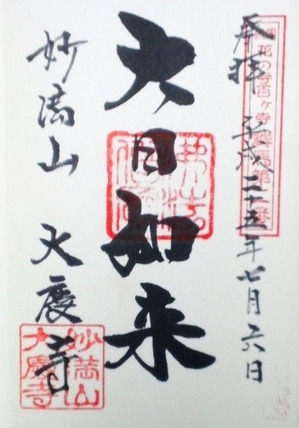 奉拝 平成二十五年七月六日
東国花の寺百ヶ寺
大日如来
妙満山 大慶寺
妙満山
大慶寺